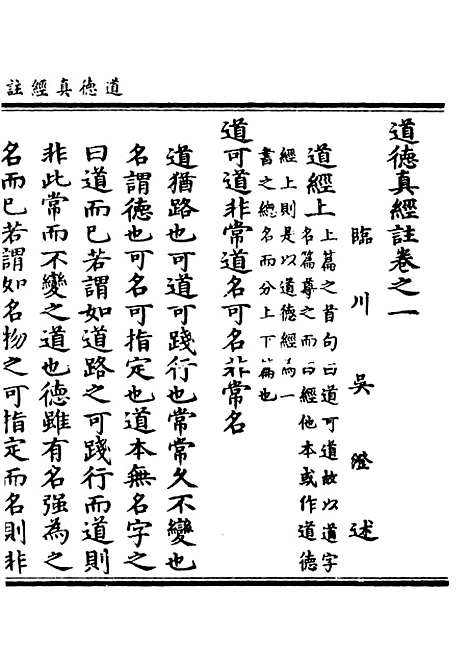 道德真經註
道德真經註卷之一
臨川吳澄述
道經上
上篇之首句曰道可道故以道字
名篇尊之而曰經他本或作道德
經上則是以道德經為一
書之總名而分上下篇也
道可道非常道名可名非常名
道猶路也可道可踐行也常常久不變也
名謂德也可名可指定也道本無名字之
曰道而已若謂如道路之可踐行而道則
非此常而不變之道也德雖有名強為之
名而已若謂如名物之可指定而名則非